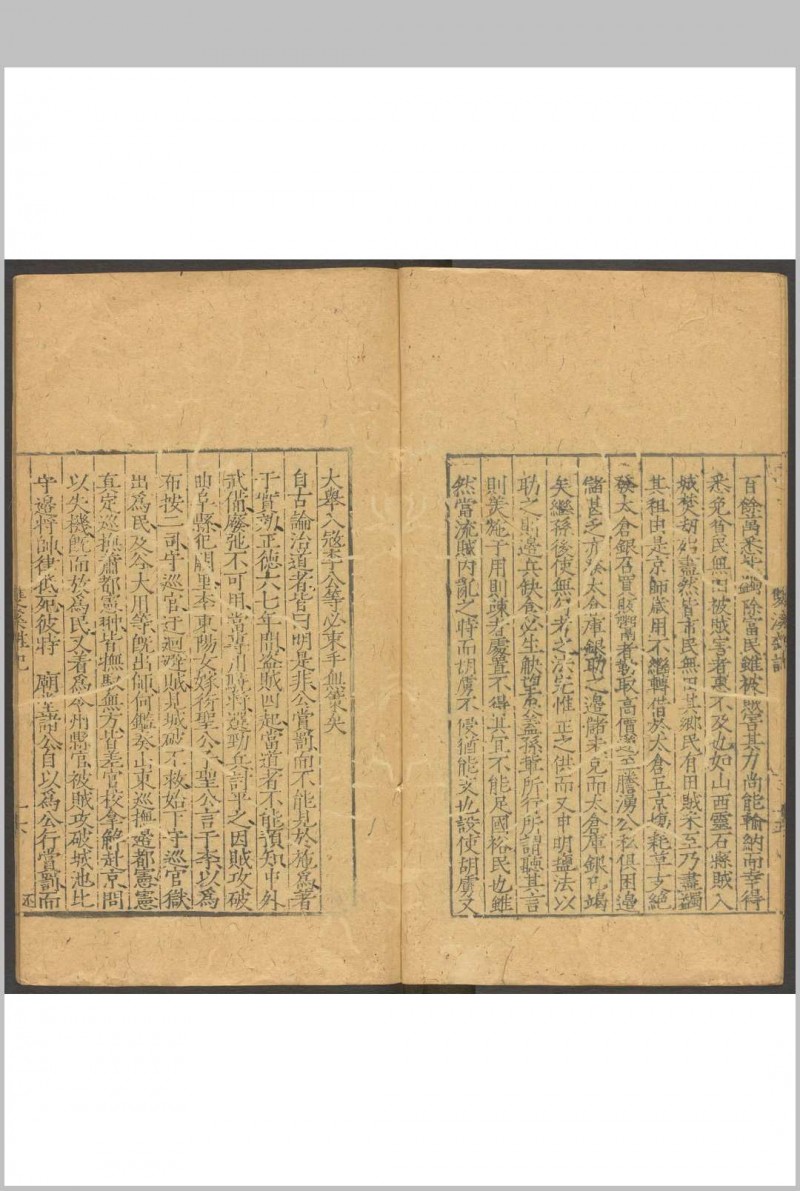 百餘萬悉并蠲除富民雖被賊害其力尚能輸納而幸得
悉免貧民無田被賊害者惠不及也如山西靈石縣賊入
城焚胡始盡然皆市民無田其鄉民有田賊未至乃盡蠲
其租由是京師歲用不繼轉借於太倉五京場耗草支絕
發太倉銀召買販鬻者勒取高價遂至騰湧公私俱困邊
儲甚乏亦發太倉庫銀助之邊儲未克而太倉庫銀已竭
矣繼孫後使無公者之法先惟正之供而又申明鹽法以
助之則邊兵缺食必生觖望矣蓋孫華所行所謂聽其言
則美施于用則疎者處置不得其宜不能足國裕民也雖
然當流賊內亂之時而胡虜不侵猶能支也設使胡虜又
大舉入寇李公等必束手無策矣
自古論治道者皆曰明是非公賞罰而不能見於施為著
于實効正德六七年間盜賊四起當道者不能預知中外
武備廢弛不可用嘗專用驍將邊勁兵討平之因賊攻破
曲阜縣犯闕里李東陽女嫁衍聖公衍聖公言于李以為
布按二司守巡官迂迴避賊見城破不救始下守巡官獄
出為民及今大用等旣出師何鑑奏山東巡撫邊都憲憲
真定巡撫蕭都憲翀皆撫馭無方皆差官校拿解赴京問
以失機旣而放為民又着為令州縣官被賊攻破城池比
守邊將帥律抵死彼時 廟堂諸公自以為公行賞罰而
雙溪雜記